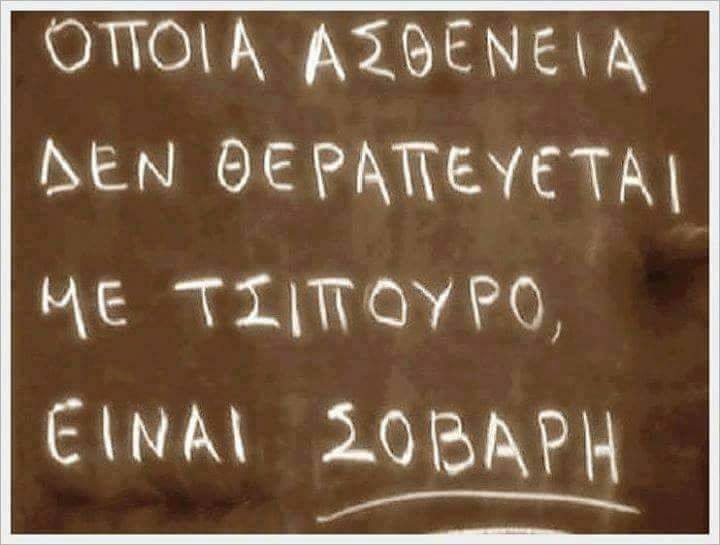 ΟΠΟΙΑ ΑΣΘΕΝΕΙΑ
ΔΕΝ ΘΕΡΑΠΕΥΕΤΑΙ
ΜΕ ΤΣΙΠΟΥΡΟ,
ΕΙΝΑΙ ΣΟΒΑΡΗ